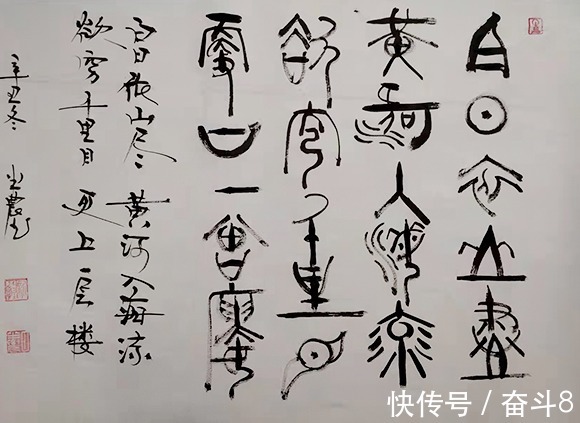 白日依山盡
黄河入海流
欲窮千里目
更上一層樓
白日依山尽 黄河入海流
欲穷千里目 更上一层楼
辛丑冬
快传号 / 奋斗8